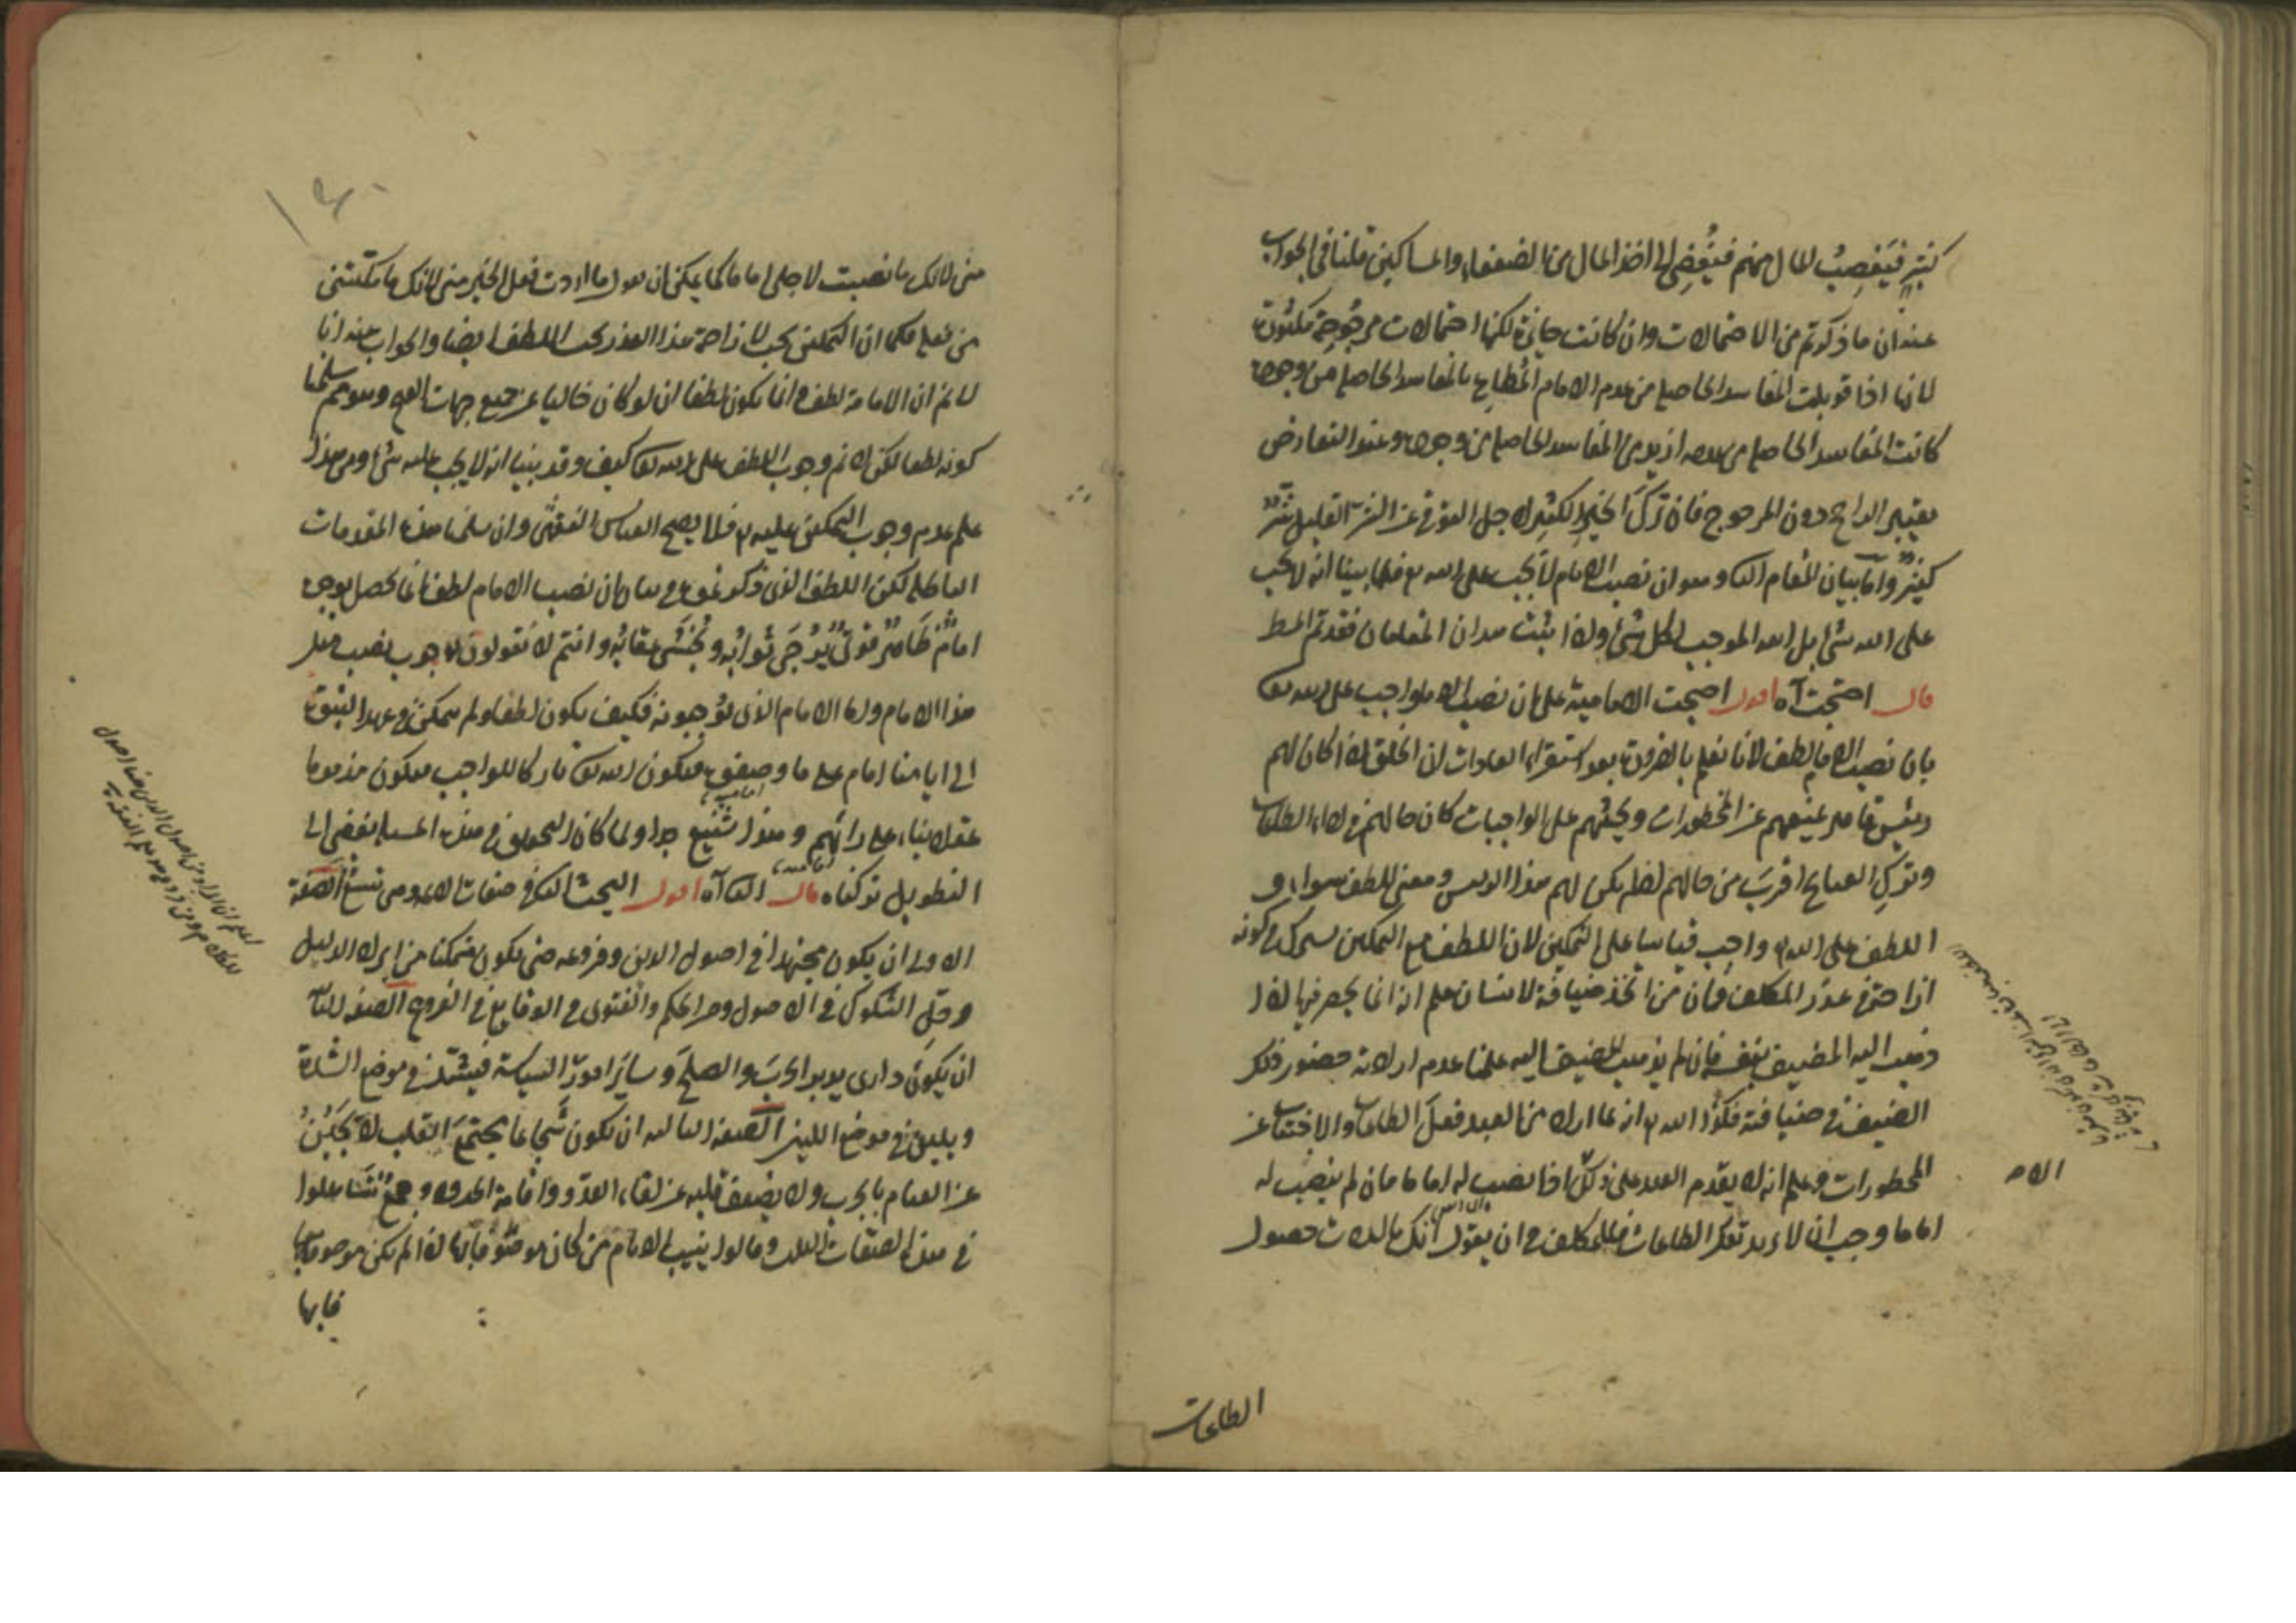 كثير فيغصب المال منهم فيفضي الى اخذ المال من الضعفاء والمساكين قلنا في الجواب
عنه ان ما ذكرتم من الاحتمالات وان كانت جائزة لكنها احتمالات مرجوحة مكثورة
لانها اذا قوبلت المفاسد الحاصلة من عدم الامام المطاع بالمفاسد الحاصلة من وجوده
كانت المفاسد الحاصلة من عدمه ازيد من المفاسد الحاصلة من وجوده وعند التعارض
يعتبر الراجح دون المرجوح فان ترك الخير الكثير لاجل التوقي عن الشر القليل شر
كثير واما بيان المقام الثا وهو ان نصب الامام لا يجب على الله تع فلما بينا انه لا يجب
على الله شئ بل الله الموجب لكل شئ ولذا يثبت هذان المقامان فقد تم المط
قال احتجت آه اقول احتجت الامامية على ان نصب الامام واجب على الله تعا
بان نصب الامام لطف لانا نعلم بالضرورة بعد استقراء العادات ان الخلق اذا كان لهم
رئيس قاهر يمنعهم عن المحظورات ويحثهم على الواجبات كان حالهم في اداء الطاعات
وترك القبايح اقرب من حالهم اذا لم يكن لهم هذا الرئيس ومعنى اللطف سواء و
اللطف على الله واجب قياسا على التمكين لان اللطف مع التمكين يشترك في كونه
ازاحة في عذر المكلف فان من اتخذ ضيافة لانسان علم انه انما يحضر فيها اذا
ذهب اليه المضيف بنفسه فان لم يذهب المضيف اليه علمنا عدم ارادته حضور ذلك
الضيف في ضيافته فكذا الله انه لما اراد من العبد فعل الطاعات والاجتناب عن
المحظورات وعلم انه لا يقدم العبد على ذلك الا اذا نصب له اماما فان لم ينصب له
اماما وجب ان لا يريد تعا الطاعات فللمكلف ح ان يقول انك ما اردت حصول
الطاعات
مني لانك ما نصبت لاجلي اماما كما يمكن ان يقول ما اردت فعل الخير مني لانك ما مكنتني
من فعله فكما ان التمكين يجب لازاحة هذا العذر يجب اللطف ايضا والجواب عنه انا
لا نم ان الامامة لطف وانما يكون لطفا ان لو كان خاليا عن جميع جهات القبح وهو مم سلمنا
كونه لطفا لكن لا نم وجوب اللطف على الله تعا كيف وقد بينا انه لا يجب عليه شئ ومن هذا
علم عدم وجوب التمكين عليه فلا يصح القياس الفقهي وان سلمنا هذه المقدمات
الباطلة لكن اللطف الذي ذكرتموه في بيان ان نصب الامام لطف انما يحصل بوجود
امام ظاهر قوي يرجى ثوابه ويخشى عقابه وانتم لا تقولون بوجوب نصب مثل
هذا الامام واما الامام الذي توجبونه فكيف يكون لطفا ولم يتمكن في عهد النبوة
الى ايامنا امام على ما وصفتموه فيكون الله تعا تاركا للواجب فيكون مذموما
عقلا بناء على رائهم وهذا شنيع جدا ولما كان التحقيق في هذه المسئلة يفضي الى
التطويل تركناه قال الثا آه اقول البحث الثا في صفات الائمة وهي تسع الصفة
الاولى ان يكون مجتهدا في اصول الدين وفروعه حتى يكون متمكنا من ايراد الدليل
وحل الشكوك في الاصول ومن الحكم والفتوى في الوقايع في الفروع الصفة الثانية
ان يكون ذا راي يدبر الحرب والصلح وسائر امور السياسة فيشتد في موضع الشدة
ويلين في موضع اللين الصفة الثالثة ان يكون شجاعا مجتمع القلب لا يجبن
عن القيام بالحرب ولا يضعف قلبه عن لقاء العدو واقامة الحدود وجمع تساهلوا
في هذه الصفات الثلث وقالوا ينيب الامام من كان موصوفا بها اذا لم يكن موصوفا بها
فايها